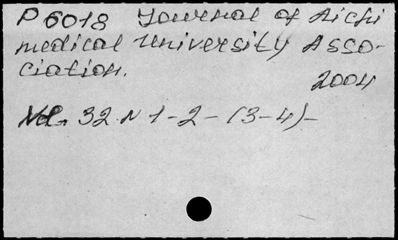 P6018 Journal of Aichi
medical University Asso-
ciation.
2004
Vol. 32 N 1-2-(3-4)-